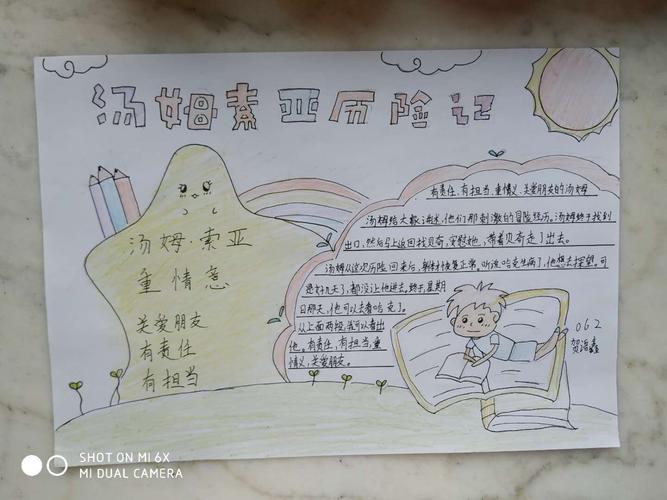 汤姆索亚历险记
汤姆·索亚
重情意
关爱朋友
有责任
有担当
有责任、有担当、重情义、关爱朋友的汤姆
汤姆给大家讲述他们那刺激的冒险经历。汤姆终于找到
出口,然后马上返回找贝奇,安慰她,带着贝奇走了出去。
汤姆从这次历险回来后,身体才恢复正常。听说哈克生病了,他想去探望。可
是好几天了,都没让他进去,终于,星期
日那天,他可以去看哈克了。
从上面两段,我可以看出
他。有责任、有担当、重
情义、关爱朋友。
062
贺
SHOT ON MI 6X
MI DUAL CAMERA